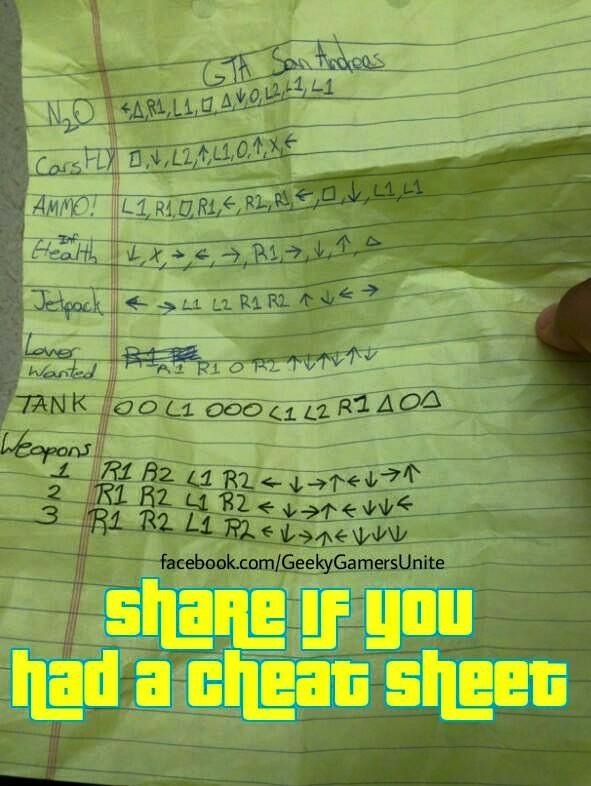 GTA San Andreas
N₂O ←,△,R1,L1,□,△,↓,O,L2,L1,L1
Cars FLY □,↓,L2,↑,L1,O,↑,X,←
AMMO! L1,R1,□,R1,←,R2,R1,←,□,↓,L1,L1
Inf
Health ↓,X,→,←,→,R1,→,↓,↑,△
Jetpack ← → L1 L2 R1 R2 ↑ ↓ ← →
Lower
Wanted R1 R1 O R2 ↑↓↑↓↑↓
TANK O O L1 O O O L1 L2 R1 △ O △
Weapons
1 R1 R2 L1 R2 ← ↓ → ↑ ← ↓ → ↑
2 R1 R2 L1 R2 ← ↓ → ↑ ← ↓ ↓ ←
3 R1 R2 L1 R2 ← ↓ → ↑ ← ↓ ↓ ↓
facebook.com/GeekyGamersUnite
SHARE IF YOU
HAD A CHEAT SHEET